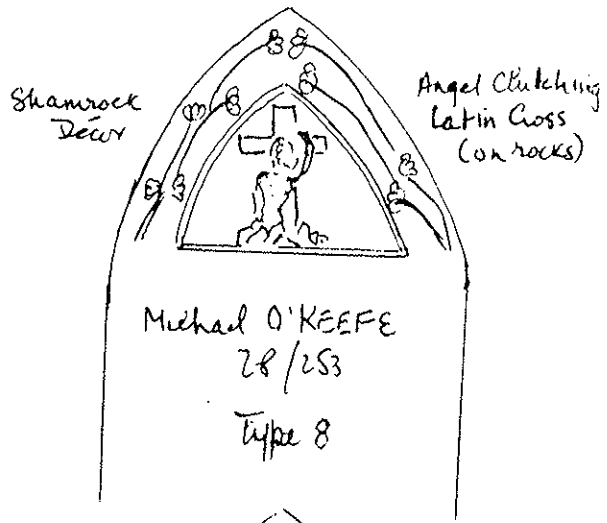 Shamrock
Décor
Angel Clutching
Latin Cross
(on rocks)
Michael O'KEEFE
28/253
Type 8